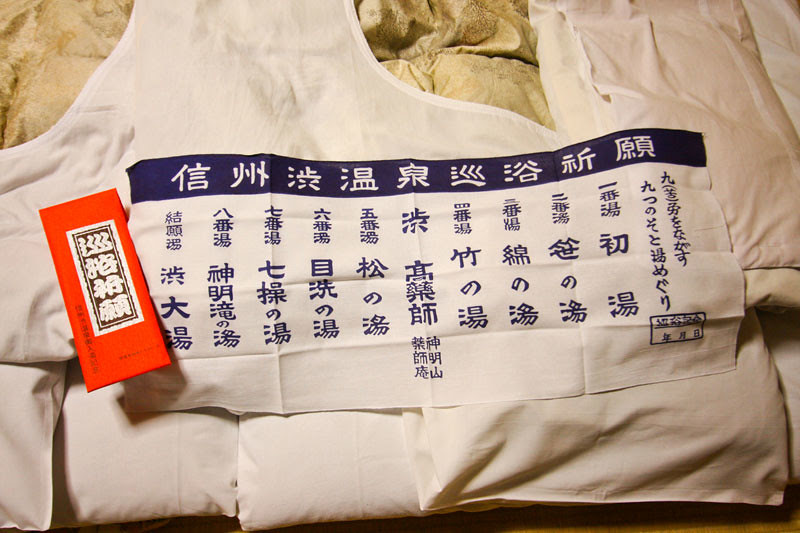 信州渋温泉巡浴祈願
九(苦)労をながす
九つのそと湯めぐり
巡浴記念
年月日
一番湯 初湯
二番湯 笹の湯
三番湯 綿の湯
四番湯 竹の湯
渋 髙藥師
神明山
藥師庵
五番湯 松の湯
六番湯 目洗の湯
七番湯 七操の湯
八番湯 神明滝の湯
結願湯 渋大湯
巡浴祈願